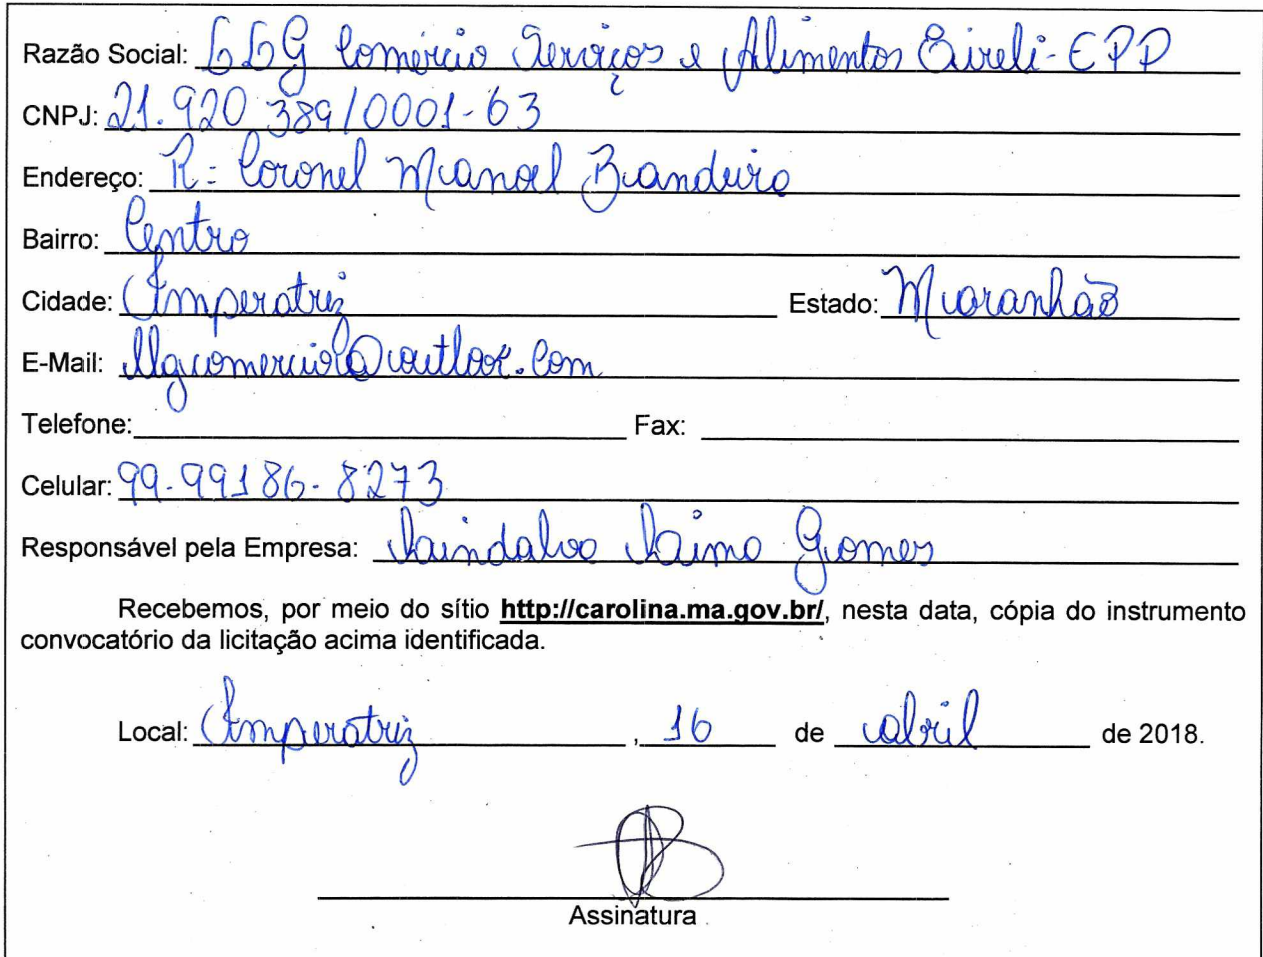 Razão Social: LLG Comércio Serviços e Alimentos Eireli-EPP
CNPJ: 21.920 389/0001-63
Endereço: R: Coronel Manoel Bandeira
Bairro: Centro
Cidade: Imperatriz Estado: Maranhão
E-Mail: llgcomercio@outlook.com
Telefone: Fax:
Celular: 99-99186-8273
Responsável pela Empresa: Gomes
Recebemos, por meio do sítio http://carolina.ma.gov.br/, nesta data, cópia do instrumento
convocatório da licitação acima identificada.
Local: Imperatriz, 16 de abril de 2018.
Assinatura